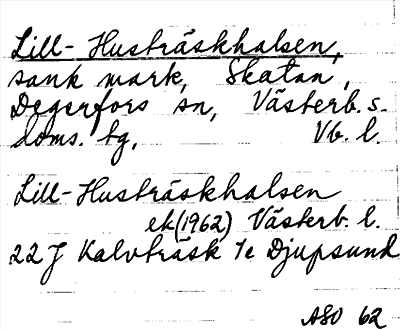 Lill-Husträskhalsen,
sank mark, Skatan,
Degerfors sn, Västerb. s.
doms. tg, Vb. l.
Lill-Husträskhalsen
ek(1962) Västerb. l.
22 J Kalvträsk 7e Djupsund
ASO 62